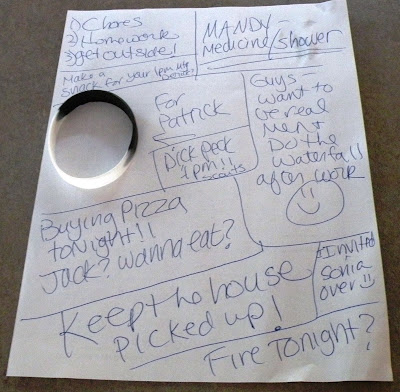 1) Chores
2) Homework
3) get outside!
Make a
snack for your 1pm
MANDY-
Medicine/shower
For
Patrick
Dick Peck
4pm!!
scouts
Guys-
want to
be real
Men &
Do the
waterfall
after work
Buying Pizza
tonight!!
Jack? wanna eat?
Keep the house
picked up!
Invited
Sonia
over!!
Fire Tonight?